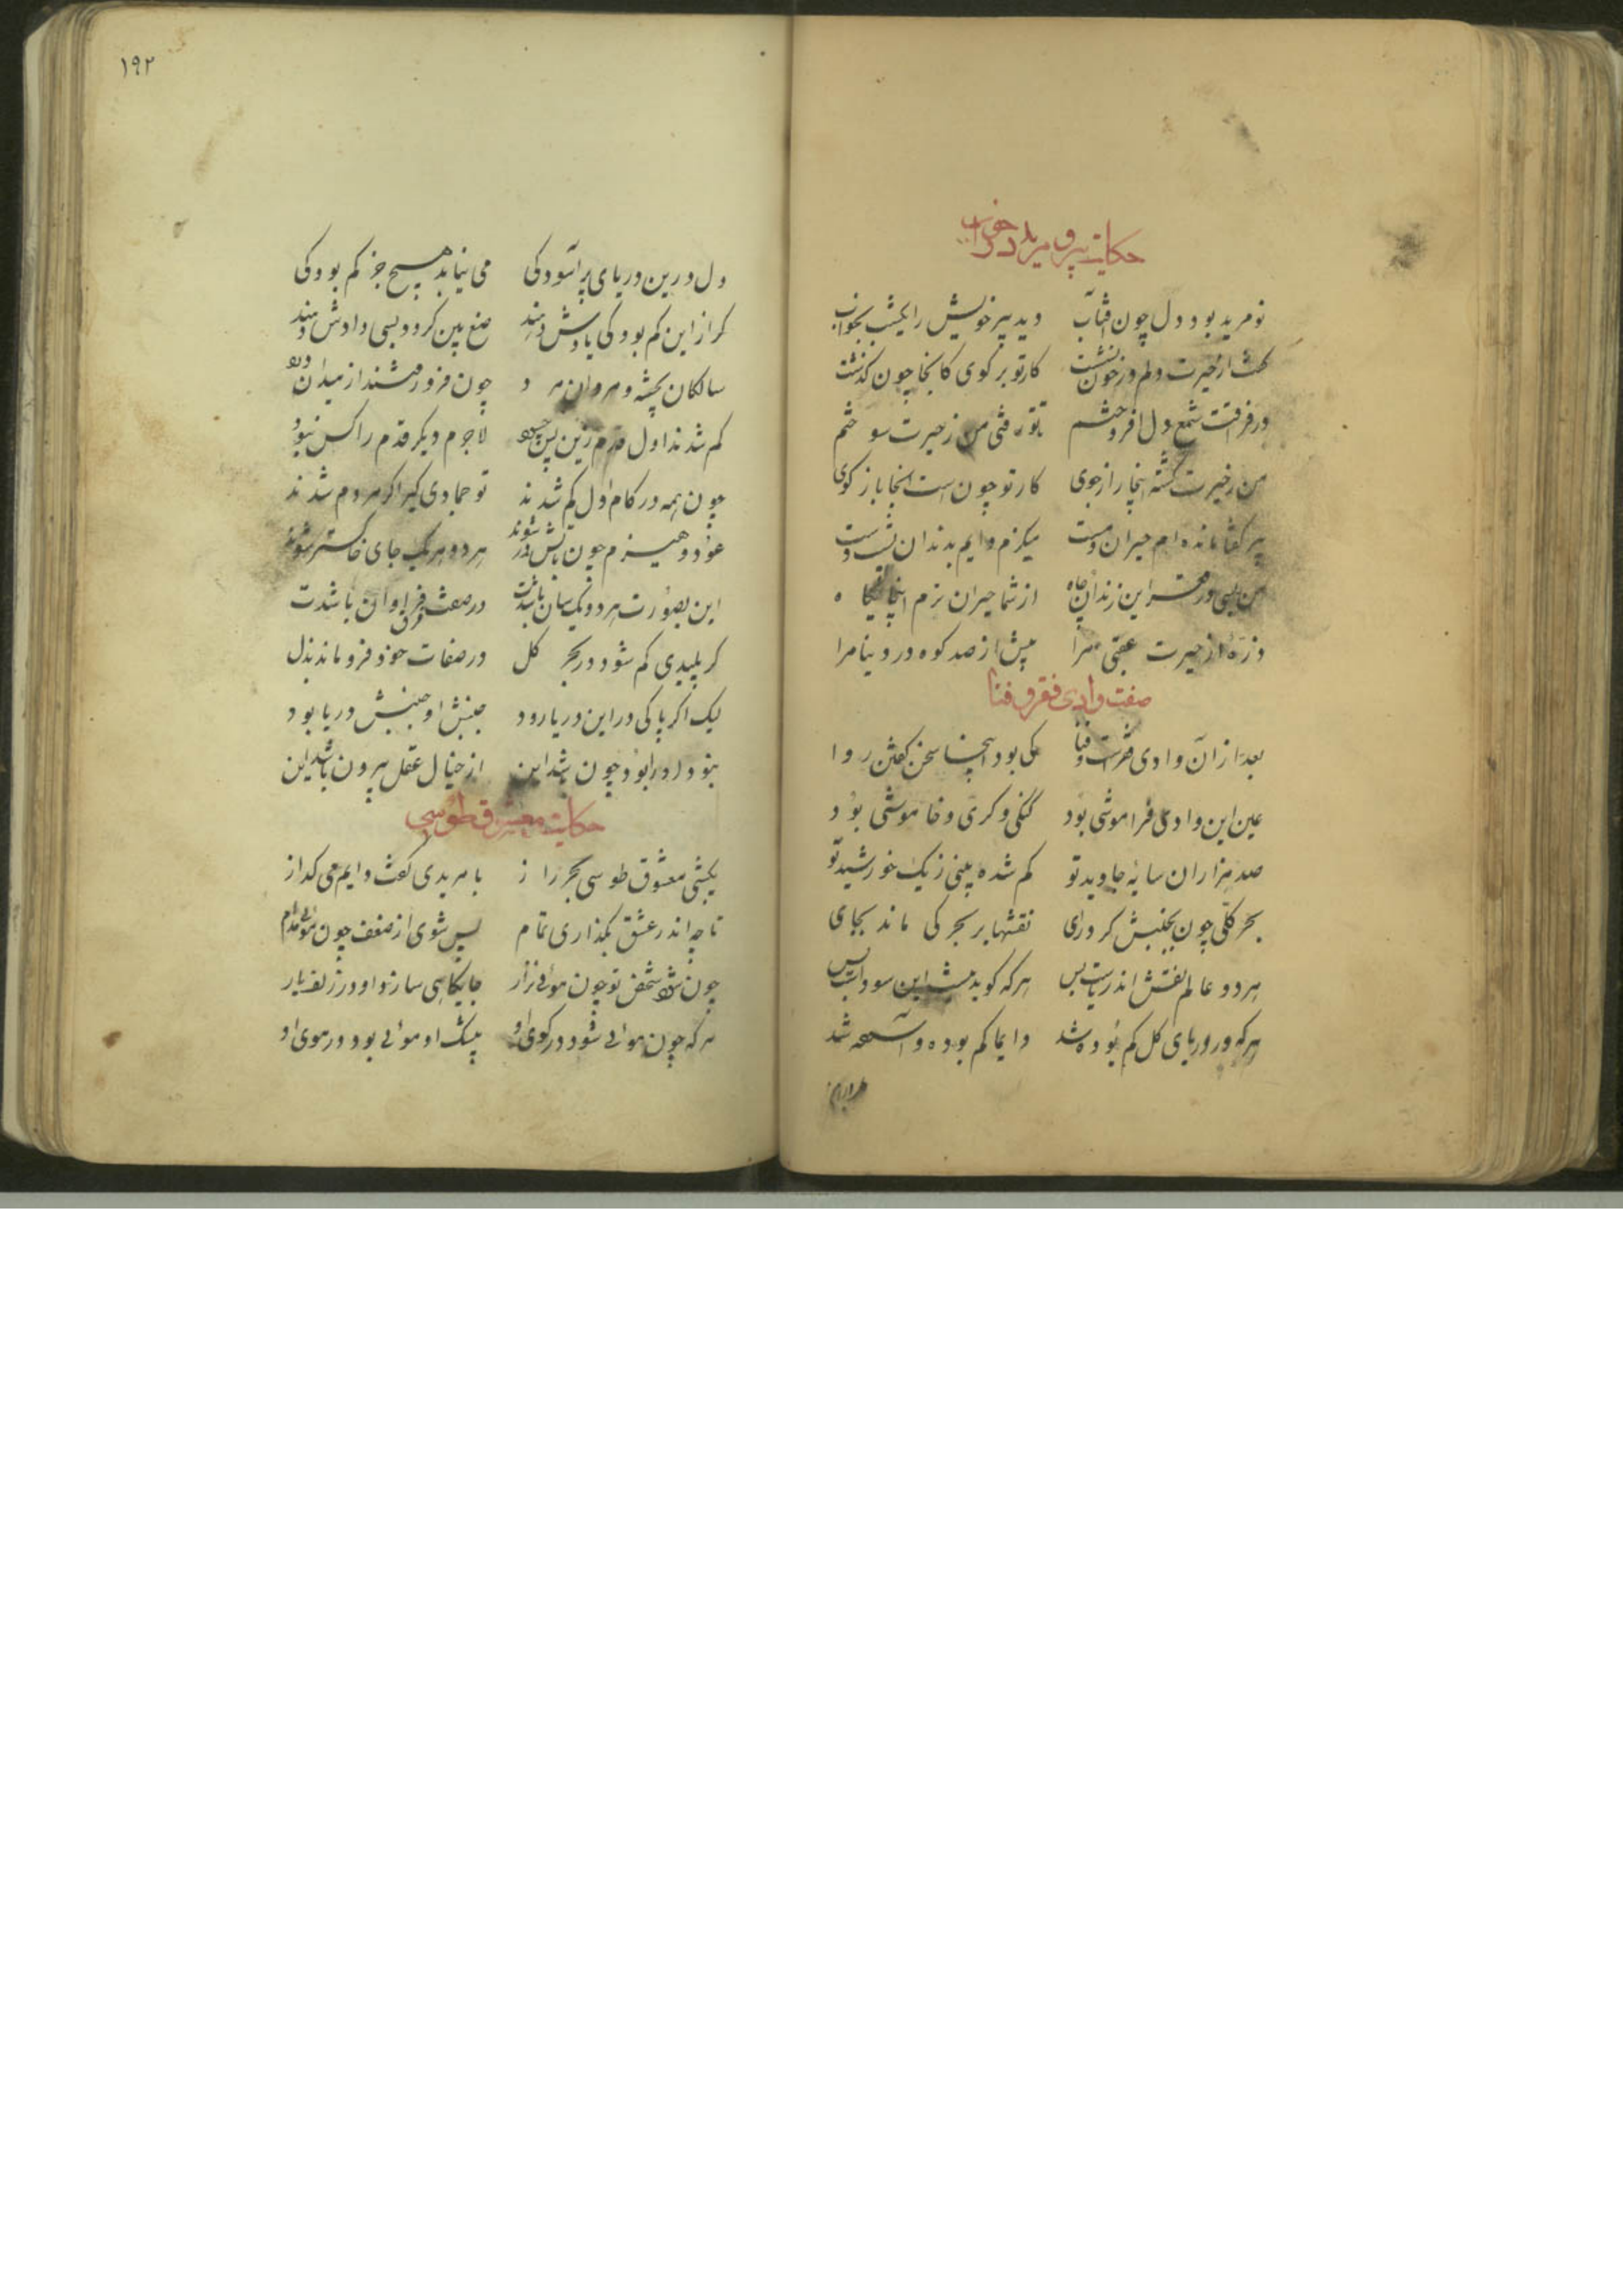 حکایت پیر و مرید در خواب
نو مرید بود دل چون آفتاب دید پیر خویش را یکشب بخواب
گفت از حیرت دلم در خون نشست کار تو بر گوی کانجا چون گذشت
در فراقت شمع دل افروختم تا تو رفتی من ز حیرت سوختم
من ز حیرت گشته اینجا رازجوی کار تو چون است آنجا باز گوی
پیر گفتا مانده ام حیران و مست میگزم دایم بدندان پشت دست
من بسی در قعر این زندان و چاه از شما حیران ترم اینجایگاه
ذره از حیرت عقبی مرا بیش از صد کوه در دنیا مرا
صفت وادی فقر و فنا
بعد ازان وادی فقرست و فنا کی بود اینجا سخن گفتن روا
عین این وادی فراموشی بود گنگی و کری و خاموشی بود
صد هزاران سایه جاوید تو گم شده بینی ز یک خورشید تو
بحر کلی چون بجنبش کرد رای نقشها بر بحر کی ماند بجای
هر دو عالم نقش اندریاست بس هر که گوید نیست این سوداست بس
هر که در دریای کل گم بوده شد دایما گم بوده و آسوده شد
۱۹۲
دل درین دریای پر آسودگی می نیابد هیچ جز گم بودگی
گر ازین گم بودگی بازش دهند صنع بین گردد بسی رازش دهند
سالکان پخته و مردان مرد چون فرو رفتند از میدان درد
گم شدند اول قدم زین پس چه بود لاجرم دیگر قدم را کس نبود
چون همه در گام اول گم شدند تو جمادی گیر اگر مردم شدند
عود و هیزم چون بآتش در شوند هر دو هر یک جای خاکستر شوند
این بصورت هر دو یکسان باشدت در صفت فرق فراوان باشدت
گر پلیدی گم شود در بحر کل در صفات خود فرو ماند بذل
لیک اگر پاکی در این دریا رود جنبش او جنبش دریا بود
نبود او و او بود چون باشد این از خیال عقل بیرون باشد این
حکایت معشوق طوسی
یکشبی معشوق طوسی بحر راز با مریدی گفت دایم می گداز
تا چه اندر عشق بگذاری تمام پس شوی از ضعف چون مویی مدام
چون شود شخص تو چون مویی نزار جایگاهی سازد او در زلف یار
هر که چون مویی شود در کوی او بیشک او مویی بود در موی او